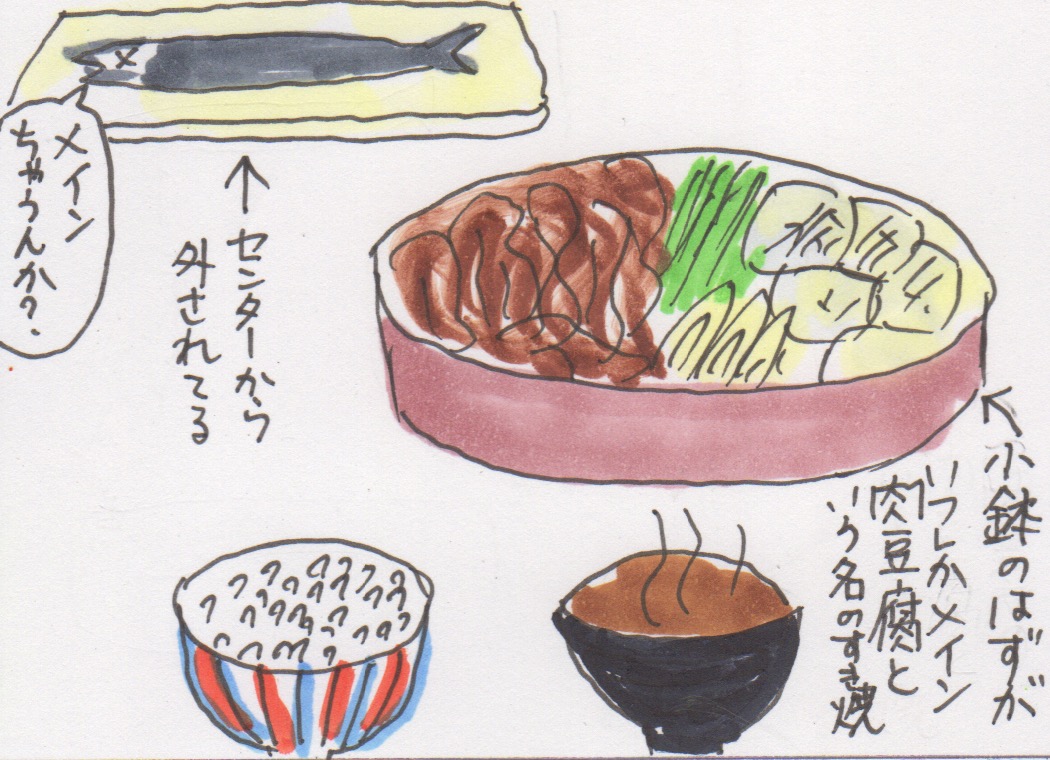 メイン
ちゃうんか?
センターから
外されてる
小鉢のはずが
いつしかメイン
肉豆腐と
いう名のすき焼